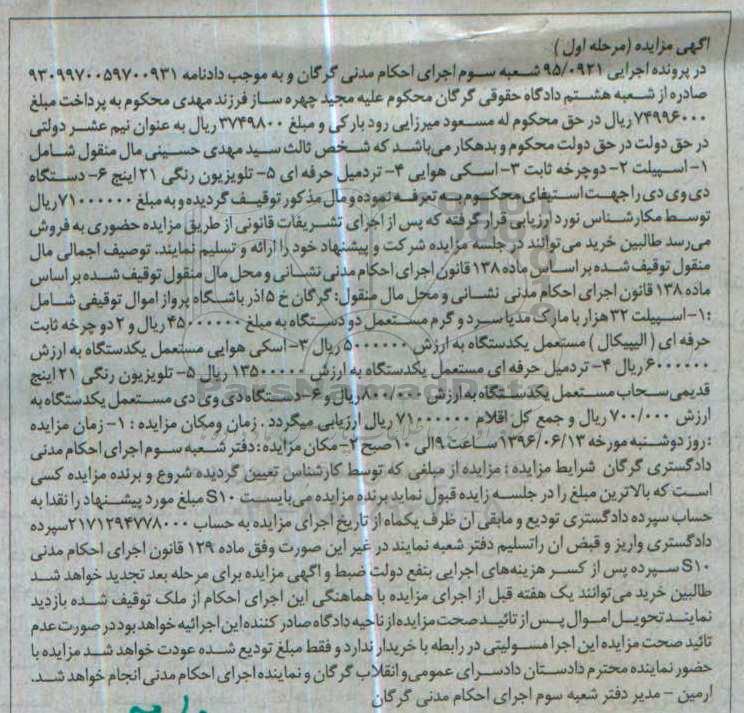 آگهی مزایده (مرحله اول)
در پرونده اجرایی ۹۵/۰۹۲۱ شعبه سوم اجرای احکام مدنی گرگان و به موجب دادنامه ۹۳۰۹۹۷۰۰۵۹۷۰۰۹۳۱
صادره از شعبه هشتم دادگاه حقوقی گرگان محکوم علیه مجید چهره ساز فرزند مهدی محکوم به پرداخت مبلغ
۷۴۹۹۶۰۰۰ ریال در حق محکوم له مسعود میرزایی رود بارکی و مبلغ ۳۷۴۹۸۰۰ ریال به عنوان نیم عشر دولتی
در حق دولت در حق دولت محکوم و بدهکار می‌باشد که شخص ثالث سید مهدی حسینی مال منقول شامل
۱- اسپیلت ۲- دوچرخه ثابت ۳- اسکی هوایی ۴- تردمیل حرفه ای ۵- تلویزیون رنگی ۲۱ اینچ ۶- دستگاه
دی وی دی را جهت استیفای محکوم به تعرفه نموده و مال مذکور توقیف گردیده و به مبلغ ۷۱۰۰۰۰۰۰ ریال
توسط مکارشناس نورد ارزیابی قرار گرفته که پس از اجرای تشریفات قانونی از طریق مزایده حضوری به فروش
می‌رسد طالبین خرید می‌توانند در جلسه مزایده شرکت و پیشنهاد خود را ارائه و تسلیم نمایند. توصیف اجمالی مال
منقول توقیف شده بر اساس ماده ۱۳۸ قانون اجرای احکام مدنی نشانی و محل مال منقول توقیف شده بر اساس
ماده ۱۳۸ قانون اجرای احکام مدنی نشانی و محل مال منقول: گرگان خ ۵ آذر باشگاه پرواز اموال توقیفی شامل
:۱- اسپیلت ۳۲ هزار با مارک مدیا سرد و گرم مستعمل دو دستگاه به مبلغ ۴۵۰۰۰۰۰۰ ریال و ۲ دو چرخه ثابت
حرفه ای (الیپیکال) مستعمل یکدستگاه به ارزش ۵۰۰۰۰۰۰ ریال ۳- اسکی هوایی مستعمل یکدستگاه به ارزش
۶۰۰۰۰۰۰ ریال ۴- تردمیل حرفه ای مستعمل یکدستگاه به ارزش ۱۳۵۰۰۰۰۰ ریال ۵- تلویزیون رنگی ۲۱ اینچ
قدیمی سحاب مستعمل یکدستگاه به ارزش ۸۰۰/۰۰۰ ریال و ۶- دستگاه دی وی دی مستعمل یکدستگاه به
ارزش ۷۰۰/۰۰۰ ریال و جمع کل اقلام ۷۱۰۰۰۰۰۰ ریال ارزیابی میگردد. زمان ومکان مزایده : ۱- زمان مزایده
:روز دوشنبه مورخه ۱۳۹۶/۰۶/۱۳ ساعت ۹ الی ۱۰ صبح ۲- مکان مزایده: دفتر شعبه سوم اجرای احکام مدنی
دادگستری گرگان شرایط مزایده : مزایده از مبلغی که توسط کارشناس تعیین گردیده شروع و برنده مزایده کسی
است که بالاترین مبلغ را در جلسه زایده قبول نماید برنده مزایده می‌بایست S۱۰ مبلغ مورد پیشنهاد را نقدا به
حساب سپرده دادگستری تودیع و مابقی ان ظرف یکماه از تاریخ اجرای مزایده به حساب ۲۱۷۱۲۹۴۷۷۸۰۰۰ سپرده
دادگستری واریز و قبض ان راتسلیم دفتر شعبه نمایند در غیر این صورت وفق ماده ۱۲۹ قانون اجرای احکام مدنی
S۱۰ سپرده پس از کسر هزینه‌های اجرایی بنفع دولت ضبط و اگهی مزایده برای مرحله بعد تجدید خواهد شد
طالبین خرید می‌توانند یک هفته قبل از اجرای مزایده با هماهنگی این اجرای احکام از ملک توقیف شده بازدید
نمایند تحویل اموال پس از تائید صحت مزایده از ناحیه دادگاه صادر کننده این اجرائیه خواهد بود در صورت عدم
تائید صحت مزایده این اجرا مسولیتی در رابطه با خریدار ندارد و فقط مبلغ تودیع شده عودت خواهد شد مزایده با
حضور نماینده محترم دادستان دادسرای عمومی و انقلاب گرگان و نماینده اجرای احکام مدنی انجام خواهد شد.
ارمین - مدیر دفتر شعبه سوم اجرای احکام مدنی گرگان
ParsNamadData